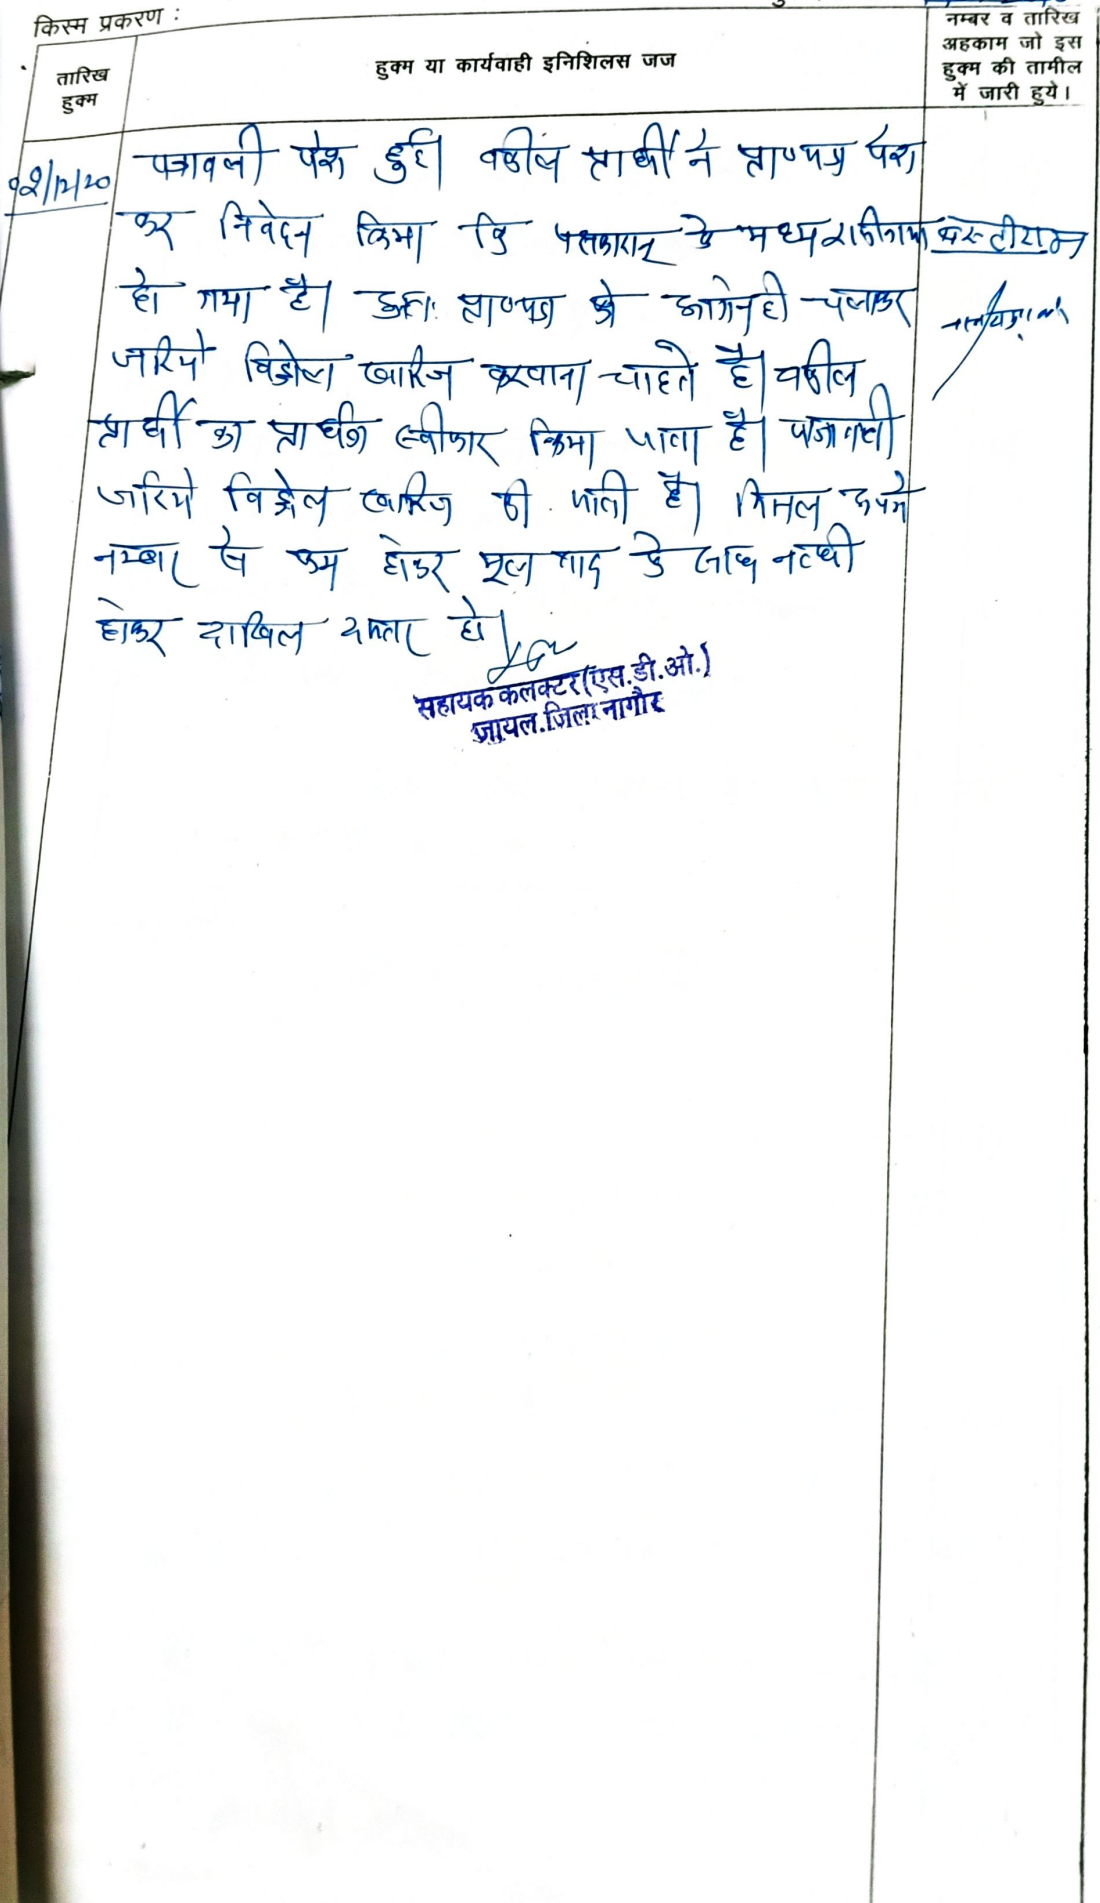 किस्म प्रकरण :
तारिख
हुक्म
हुक्म या कार्यवाही इनिशिलस जज
नम्बर व तारिख
अहकाम जो इस
हुक्म की तामील
में जारी हुये।
पत्रावली पेश हुई। वकील प्रार्थी ने प्रा०पत्र पेश
कर निवेदन किया कि पक्षकारान् के मध्य राजीनामा
हो गया है। अतः प्रा०पत्र को आगे नही चलाकर
जरिये विड्रोल खारिज करवाना चाहते है। वकील
प्रार्थी का स्वीकार किया जाता है। पत्रावली
जरिये विड्रोल खारिज की जाती है। मिसल अपने
नम्बर से कम होकर मूल वाद के साथ नत्थी
होकर दाखिल दफ्तर हो।
सहायक कलक्टर (एस.डी.ओ.)
जायल.जिला नागौर